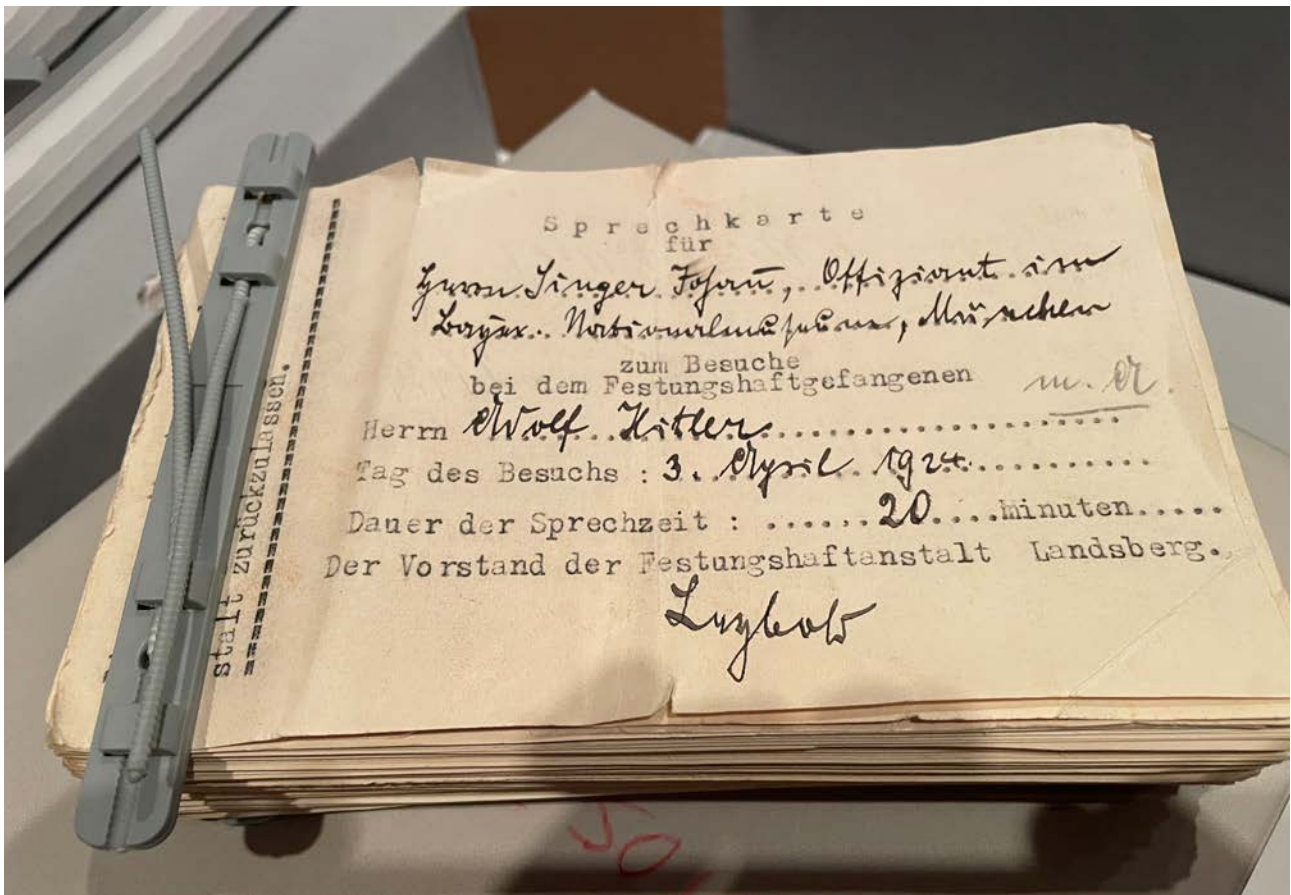 Sprechkarte
für
Herrn Singer Johañ, Offiziant im
Bayer. Nationalmuseum, München
zum Besuche
bei dem Festungshaftgefangenen
m. A.
Herrn Adolf Hitler
Tag des Besuchs : 3. April 1924
Dauer der Sprechzeit : ...... 20 .... minuten.....
Der Vorstand der Festungshaftanstalt Landsberg.
Leybold
stalt zurückzulassen.